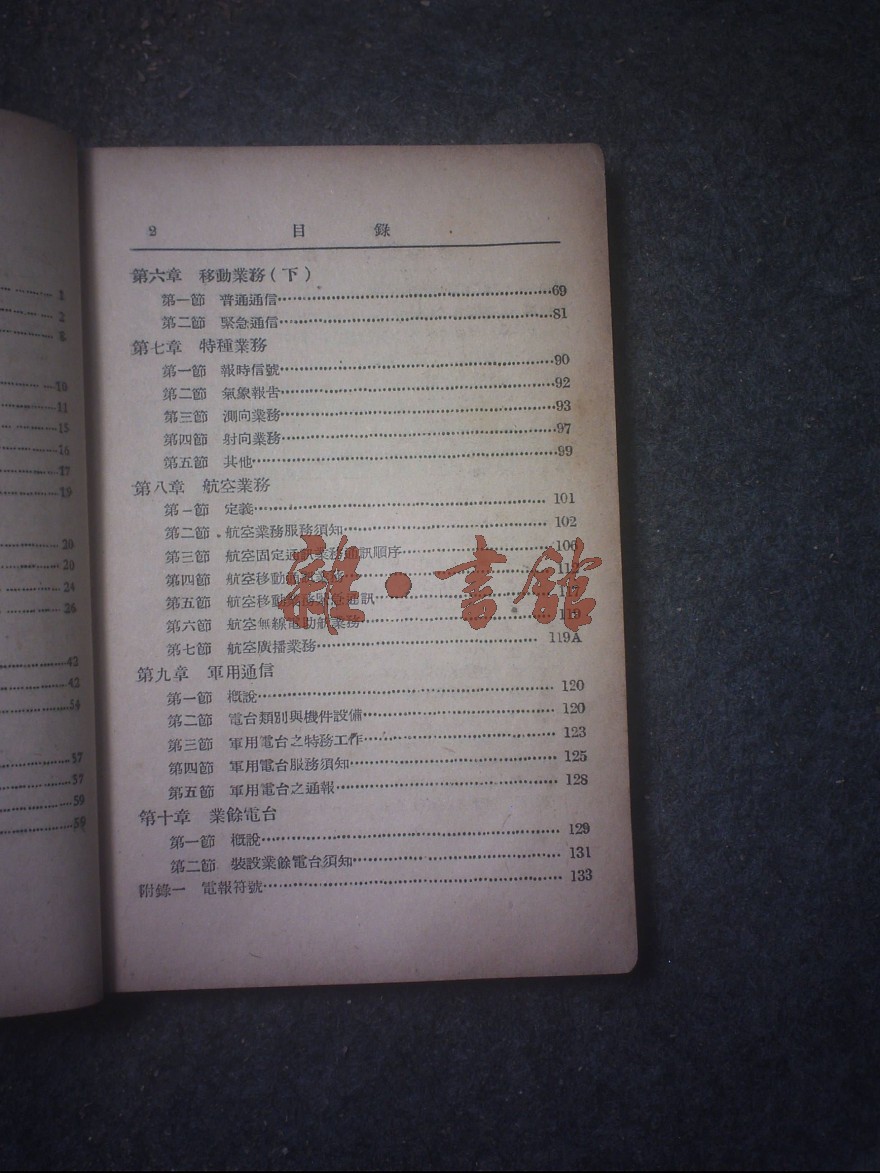 1
2
8
10
11
15
16
17
19
20
20
24
26
42
42
54
57
57
59
59
2 目錄
第六章 移動業務(下)
第一節 普通通信 69
第二節 緊急通信 81
第七章 特種業務
第一節 報時信號 90
第二節 氣象報告 92
第三節 測向業務 93
第四節 射向業務 97
第五節 其他 99
第八章 航空業務
第一節 定義 101
第二節 航空業務服務須知 102
第三節 航空固定通訊業務通訊順序 106
第四節 航空移動通訊業務 112
第五節 航空移動業務緊急通訊 117
第六節 航空無線電助航業務 119
第七節 航空廣播業務 119A
第九章 軍用通信
第一節 概說 120
第二節 電台類別與機件設備 120
第三節 軍用電台之特務工作 123
第四節 軍用電台服務須知 125
第五節 軍用電台之通報 128
第十章 業餘電台
第一節 概說 129
第二節 裝設業餘電台須知 131
附錄一 電報符號 133
雜·書館